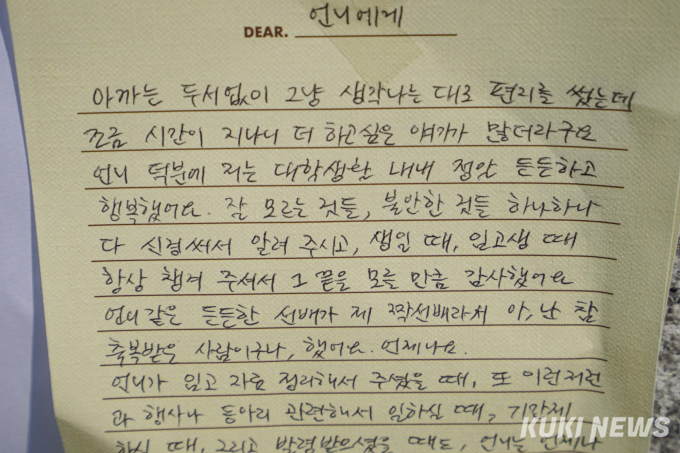 DEAR. 언니에게
아까는 두서없이 그냥 생각나는 대로 편지를 썼는데
조금 시간이 지나니 더 하고싶은 얘기가 많더라구요
언니 덕분에 저는 대학생활 내내 정말 든든하고
행복했어요. 잘 모르는 것들, 불안한 것들 하나하나
다 신경써서 알려 주시고, 생일 때, 임고생 때
항상 챙겨 주셔서 그 끝을 모를 만큼 감사했어요
언니같은 든든한 선배가 제 짝선배라서 아, 난 참
축복받은 사람이구나, 했어요. 언제나요.
언니가 임고 자료 정리해서 주셨을 때, 또 이런저런
과 행사나 동아리 관련해서 임하실 때, 기간제
하실 때, 그리고 발령받으셨을 때도, 언니는 언제나
KUKI NEWS